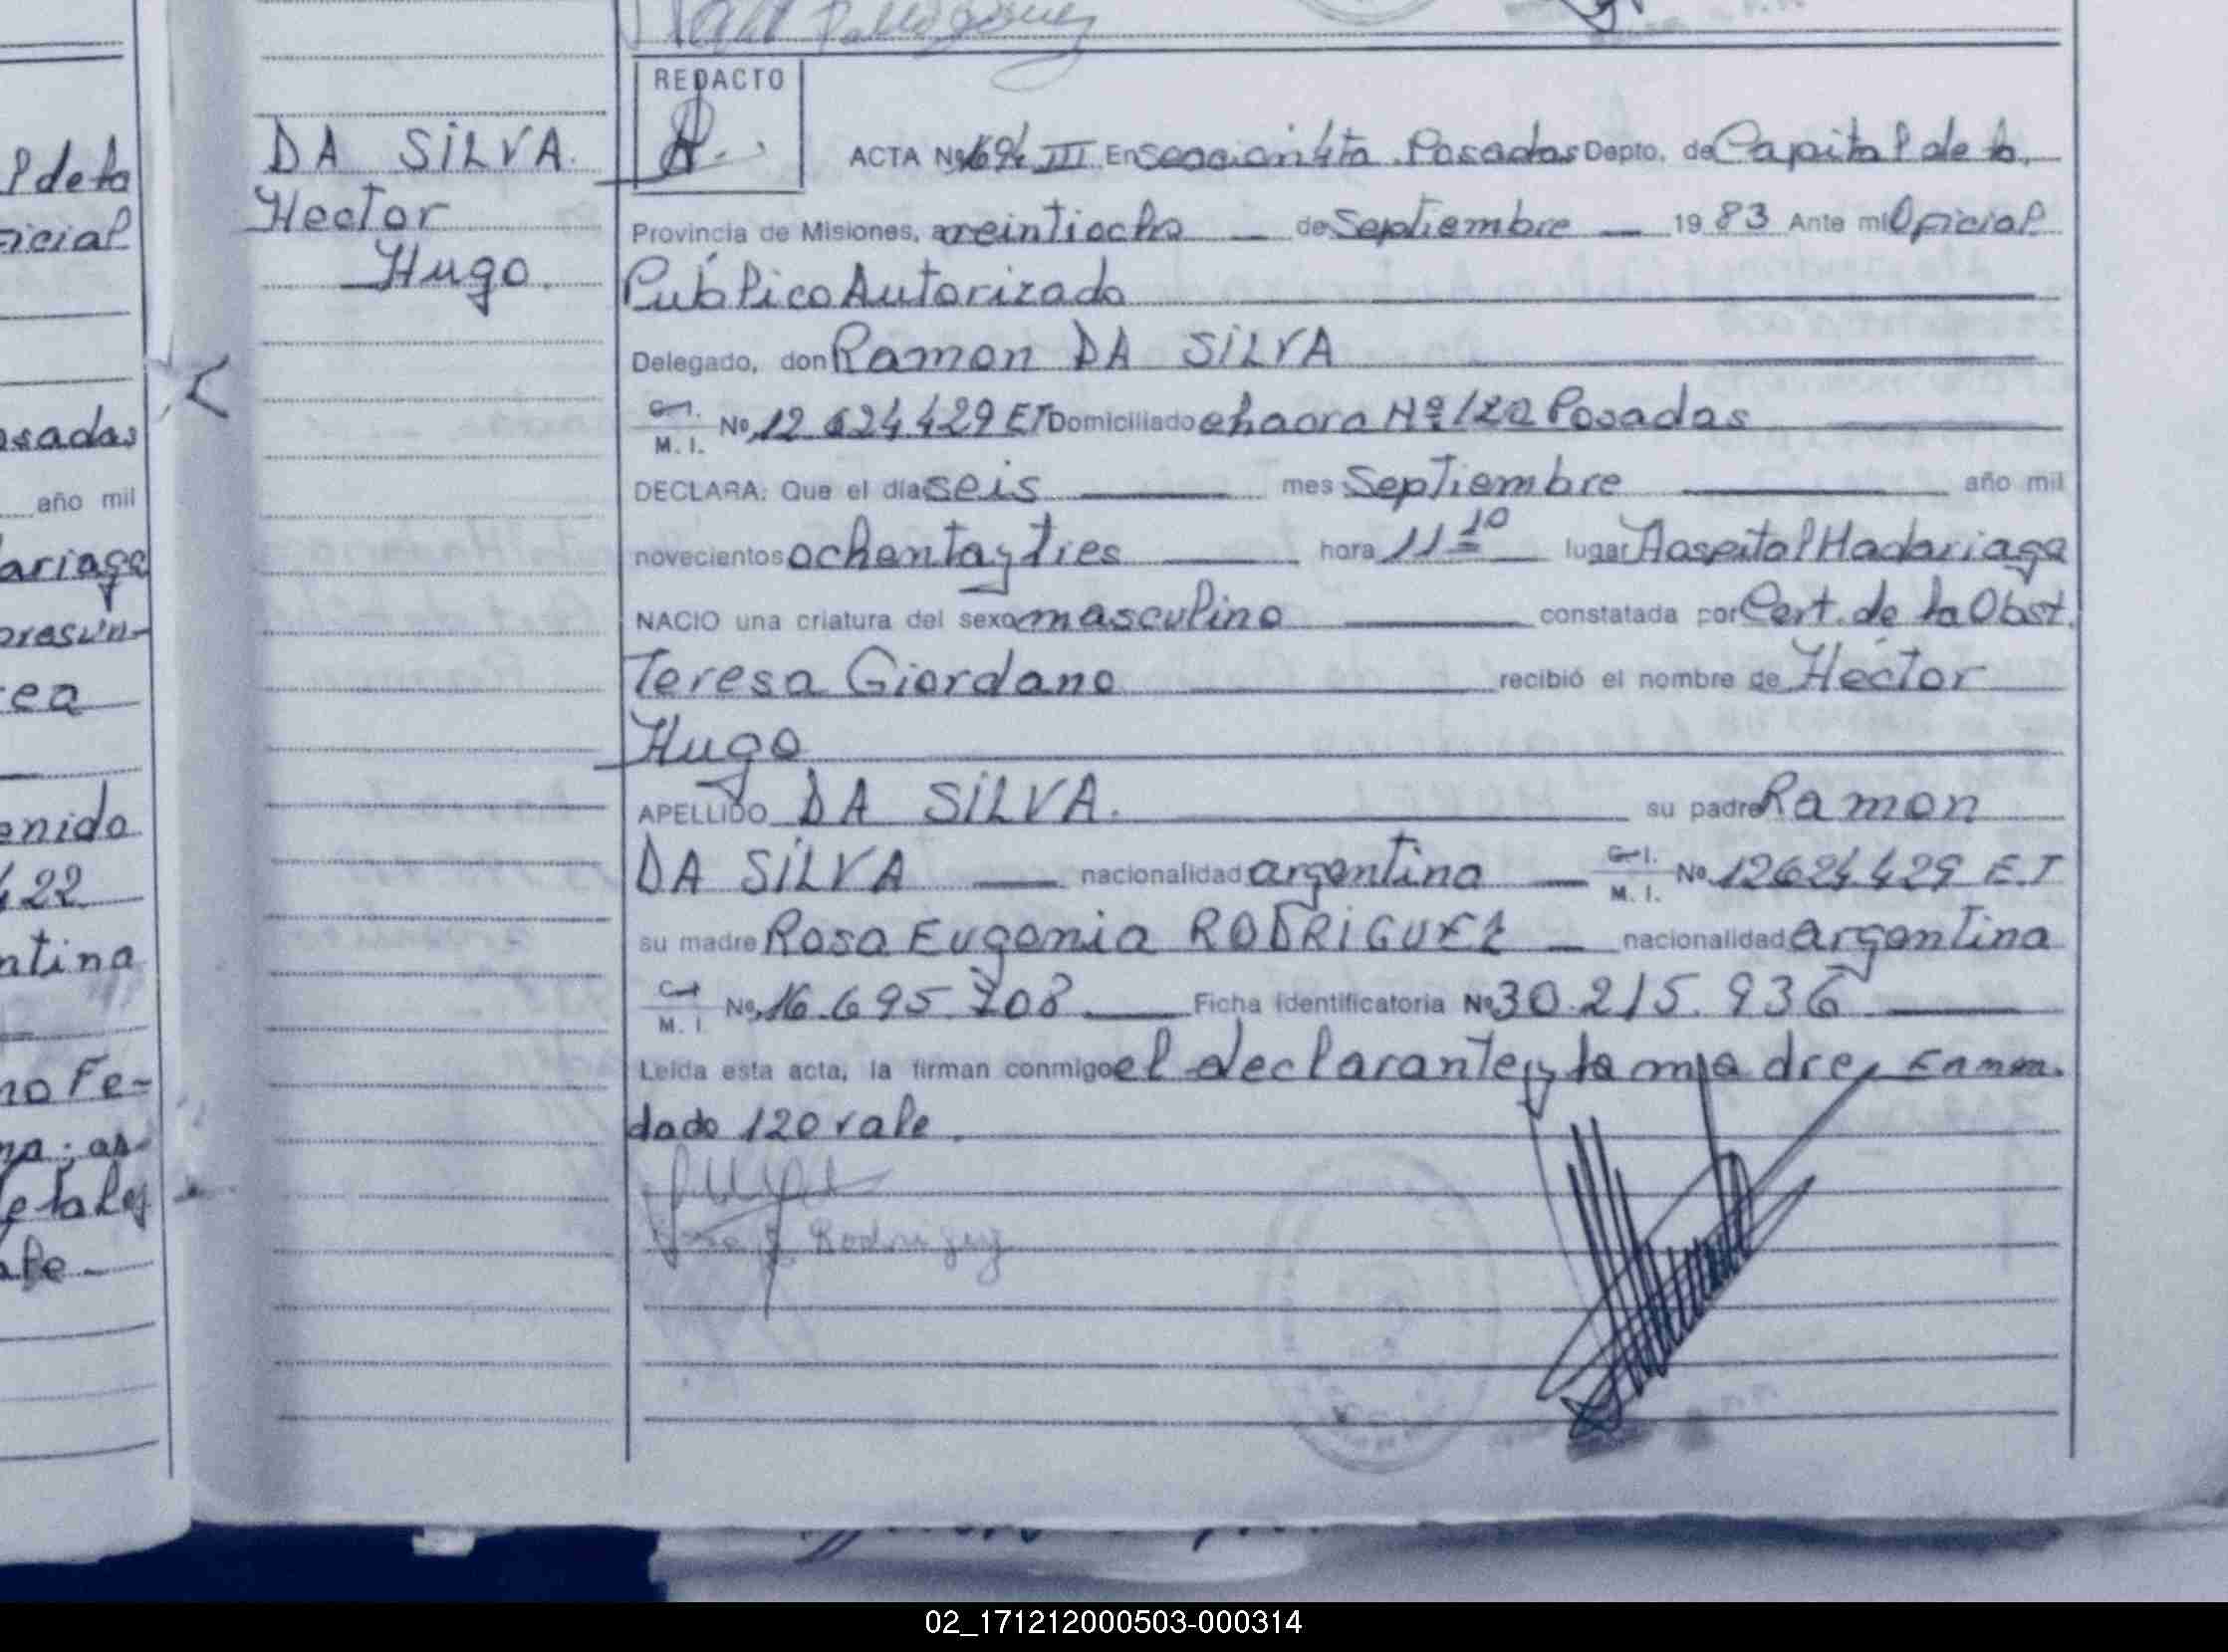 REDACTO
DA SILVA.
Hector
Hugo.
ACTA Nº 1694 III En Seccion 4ta. Posadas Depto. de Capital de la
Provincia de Misiones, a veintiocho de Septiembre 1983 Ante mí Oficial
Público Autorizado
Delegado, don Ramon DA SILVA
C. I.
M. I. Nº 12.624.429 ET Domiciliado chacra Nº 120 Posadas
DECLARA: Que el día seis mes Septiembre año mil
novecientos ochenta y tres hora 11 10 lugar Hospital Madariaga
NACIO una criatura del sexo masculino constatada por Cert. de la Obst.
Teresa Giordano recibió el nombre de Hector
Hugo
APELLIDO DA SILVA. su padre Ramon
DA SILVA nacionalidad argentina C. I.
M. I. Nº 12624429 E.T
su madre Rosa Eugenia RODRIGUEZ nacionalidad argentina
C. I.
M. I. Nº 16.695.708 Ficha Identificatoria Nº 30.215.936
Leída esta acta, la firman conmigo el declarante y la madre, Enmen-
dado 120 vale.
Rodriguez
l de la
icial
osadas
año mil
ariaga
presun-
rea
enido
422
ntina
no Fe-
02_171212000503-000314